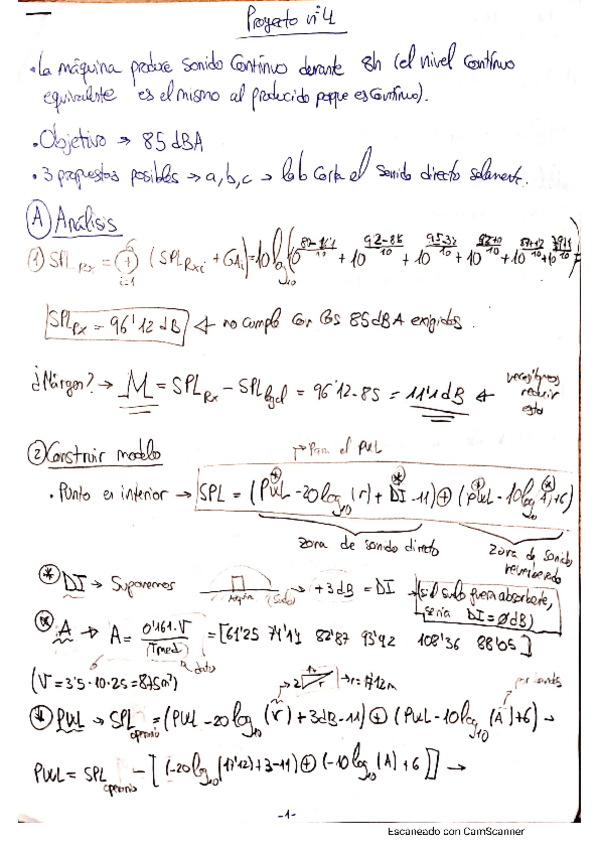 Proyecto nº4
• La máquina produce sonido continuo durante 8h (el nivel continuo
equivalente es el mismo al producido porque es continuo).
• Objetivo → 85 dBA
• 3 propuestas posibles → a, b, c → la b corta el sonido directo solamente.
Ⓐ Análisis
① SPL Rx = ⊕ i=1 (SPL Rxi + GAi) = 10 log10 (
SPL Rx = 96'12 dB ← no cumple con los 85 dBA exigidos.
¿Márgen? → M = SPL Rx - SPL legal = 96'12 - 85 = 11'1 dB ← reducir esto
② Construir modelo → Para el PWL
• Punto es interior → SPL = (PWL - 20 log10 (r) + DI - 11) ⊕ (PWL - 10 log10 (A) + 6)
zona de sonido directo zona de sonido reverberado
* DI → Suponemos → +3 dB = DI (si el suelo fuera absorbente,
sería DI = 0 dB)
A → A = 0'161·V / Tmed = [61'25 74'14 82'87 93'92 108'36 88'05]
(V = 3'5 · 10 · 25 = 875 m³) → r = 17'12 m
PWL → SPL = (PWL - 20 log10 (r) + 3 dB - 11) ⊕ (PWL - 10 log10 (A) + 6) →
PWL = SPL - [(-20 log10 (17'12) + 3 - 11) ⊕ (-10 log10 (A) + 6)] →
-1-
Escaneado con CamScanner